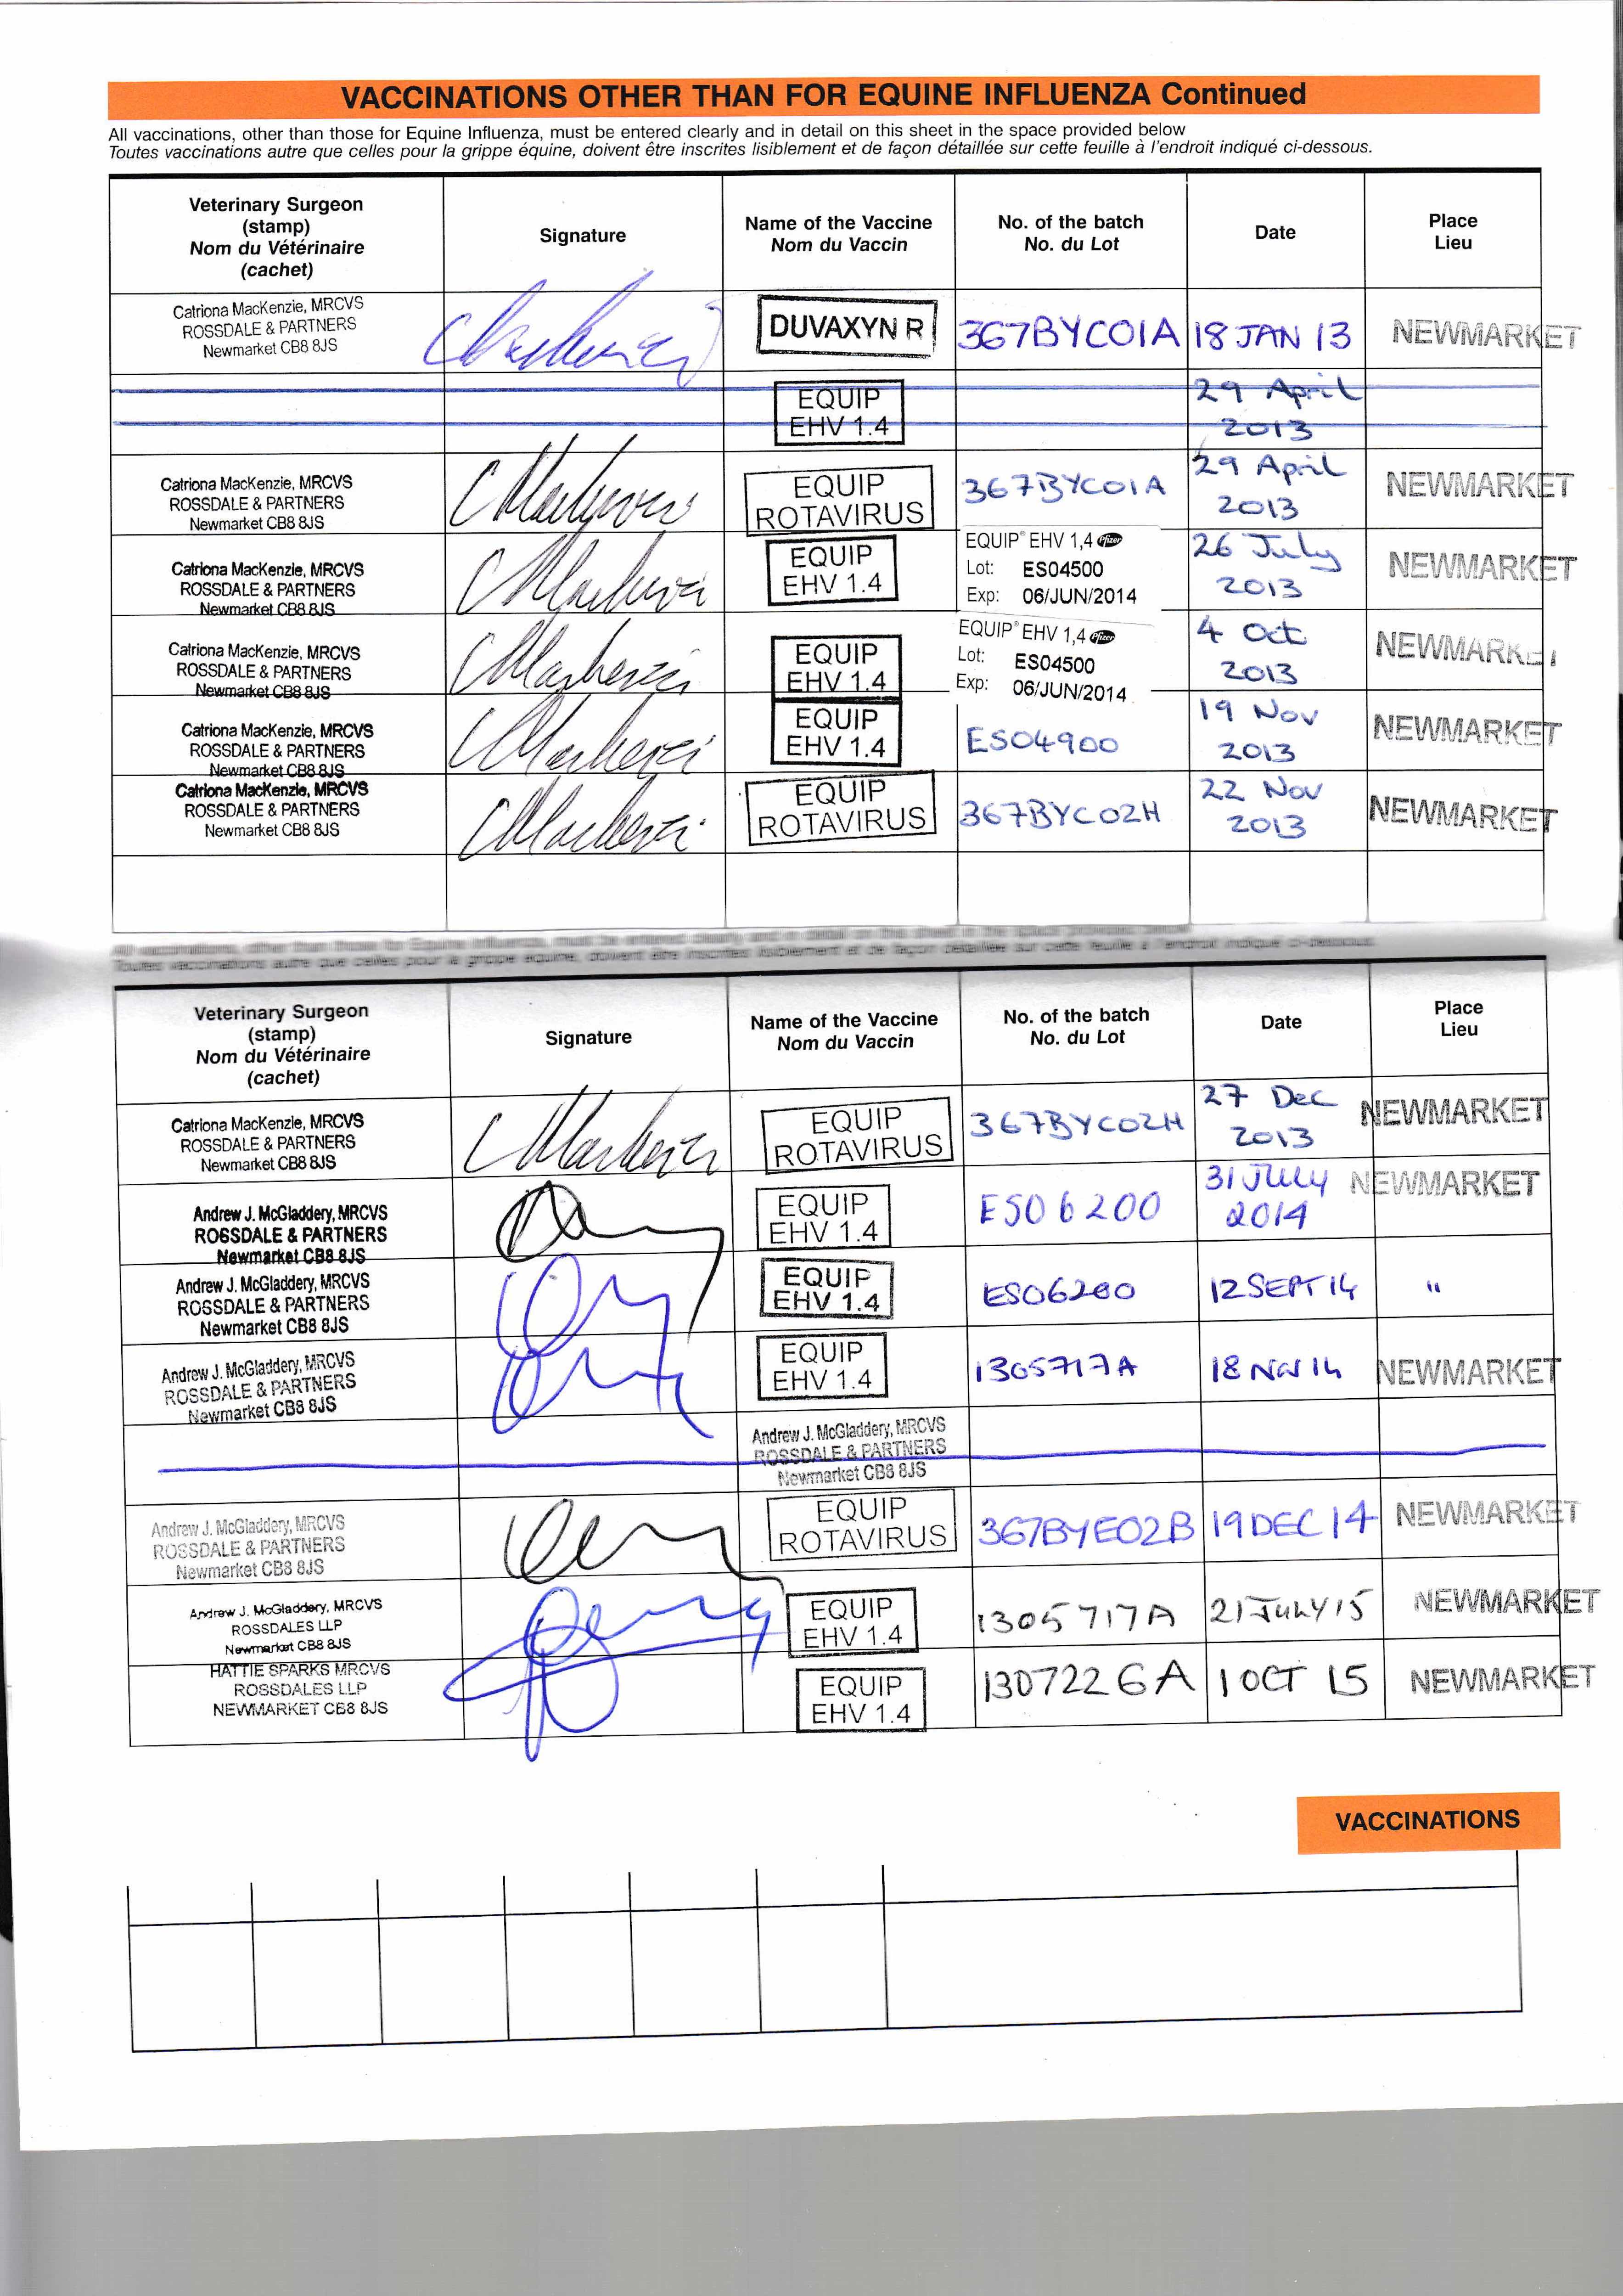 VACCINATIONS OTHER THAN FOR EQUINE INFLUENZA Continued
All vaccinations, other than those for Equine Influenza, must be entered clearly and in detail on this sheet in the space provided below
Toutes vaccinations autre que celles pour la grippe équine, doivent être inscrites lisiblement et de façon détaillée sur cette feuille à l'endroit indiqué ci-dessous.
Veterinary Surgeon
(stamp)
Nom du Vétérinaire
(cachet)
Signature
Name of the Vaccine
Nom du Vaccin
No. of the batch
No. du Lot
Date
Place
Lieu
Catriona MacKenzie, MRCVS
ROSSDALE & PARTNERS
Newmarket CB8 8JS
DUVAXYN R
367BYC01A
18 JAN 13
NEWMARKET
EQUIP
EHV 1.4
29 April
2013
Catriona MacKenzie, MRCVS
ROSSDALE & PARTNERS
Newmarket CB8 8JS
EQUIP
ROTAVIRUS
367BYC01A
29 April
2013
NEWMARKET
Catriona MacKenzie, MRCVS
ROSSDALE & PARTNERS
Newmarket CB8 8JS
EQUIP
EHV 1.4
EQUIP® EHV 1,4 Pfizer
Lot: ES04500
Exp: 06/JUN/2014
26 July
2013
NEWMARKET
Catriona MacKenzie, MRCVS
ROSSDALE & PARTNERS
Newmarket CB8 8JS
EQUIP
EHV 1.4
EQUIP® EHV 1,4 Pfizer
Lot: ES04500
Exp: 06/JUN/2014
4 Oct
2013
NEWMARKET
Catriona MacKenzie, MRCVS
ROSSDALE & PARTNERS
Newmarket CB8 8JS
EQUIP
EHV 1.4
ES04900
19 Nov
2013
NEWMARKET
Catriona MacKenzie, MRCVS
ROSSDALE & PARTNERS
Newmarket CB8 8JS
EQUIP
ROTAVIRUS
367BYC02H
22 Nov
2013
NEWMARKET
All vaccinations, other than those for Equine Influenza, must be entered clearly and in detail on this sheet in the space provided below
Toutes vaccinations autre que celles pour la grippe équine, doivent être inscrites lisiblement et de façon détaillée sur cette feuille à l'endroit indiqué ci-dessous.
Veterinary Surgeon
(stamp)
Nom du Vétérinaire
(cachet)
Signature
Name of the Vaccine
Nom du Vaccin
No. of the batch
No. du Lot
Date
Place
Lieu
Catriona MacKenzie, MRCVS
ROSSDALE & PARTNERS
Newmarket CB8 8JS
EQUIP
ROTAVIRUS
367BYC02H
27 Dec
2013
NEWMARKET
Andrew J. McGladdery, MRCVS
ROSSDALE & PARTNERS
Newmarket CB8 8JS
EQUIP
EHV 1.4
ES06200
31 JULY
2014
NEWMARKET
Andrew J. McGladdery, MRCVS
ROSSDALE & PARTNERS
Newmarket CB8 8JS
EQUIP
EHV 1.4
ES06200
12 SEPT 14
"
Andrew J. McGladdery, MRCVS
ROSSDALE & PARTNERS
Newmarket CB8 8JS
EQUIP
EHV 1.4
1305717A
18 Nov 14
NEWMARKET
Andrew J. McGladdery, MRCVS
ROSSDALE & PARTNERS
Newmarket CB8 8JS
Andrew J. McGladdery, MRCVS
ROSSDALE & PARTNERS
Newmarket CB8 8JS
EQUIP
ROTAVIRUS
367BYE02B
19 DEC 14
NEWMARKET
Andrew J. McGladdery, MRCVS
ROSSDALES LLP
Newmarket CB8 8JS
EQUIP
EHV 1.4
1305717A
21 JULY 15
NEWMARKET
HATTIE SPARKS MRCVS
ROSSDALES LLP
NEWMARKET CB8 8JS
EQUIP
EHV 1.4
1307226A
1 OCT 15
NEWMARKET
VACCINATIONS